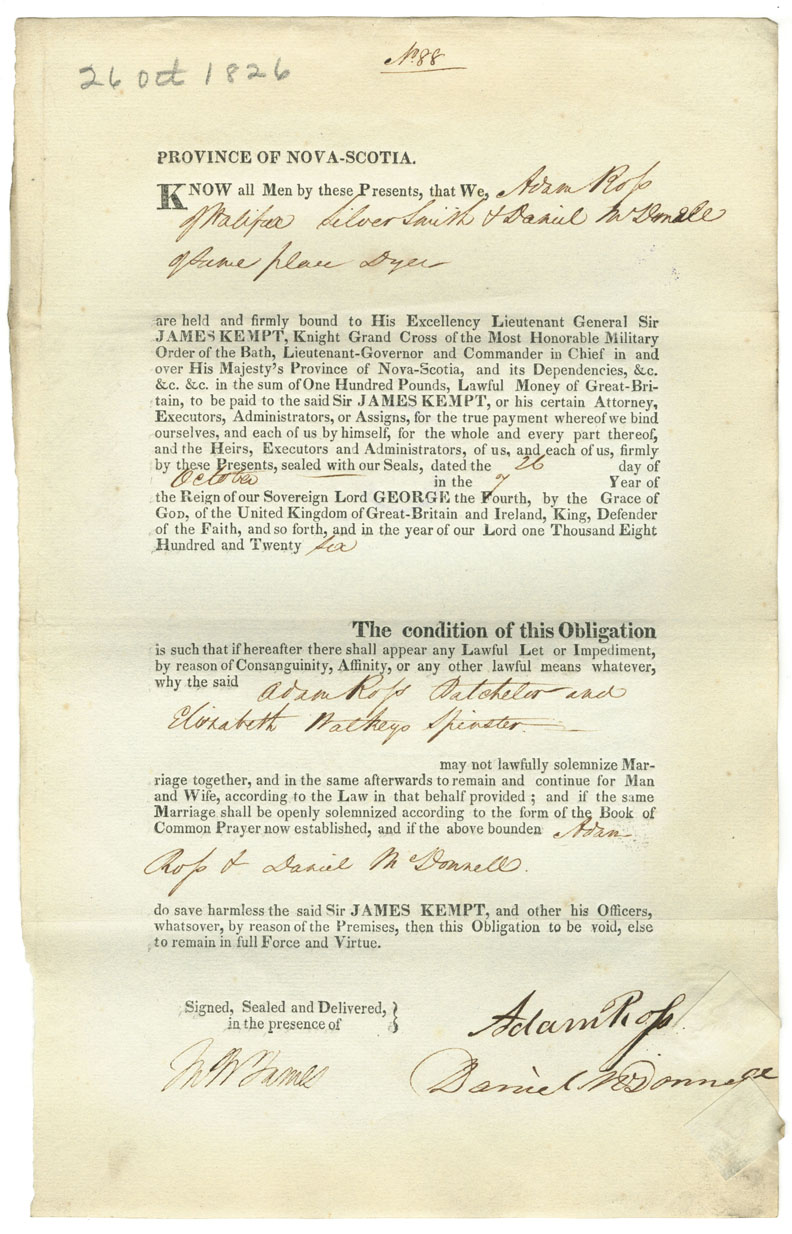 No. 88
26 Oct 1826
PROVINCE OF NOVA-SCOTIA.
KNOW all Men by these Presents, that We, Adam Ross
of Halifax Silver Smith & Daniel McDonell
of same place Dyer
are held and firmly bound to His Excellency Lieutenant General Sir
JAMES KEMPT, Knight Grand Cross of the Most Honorable Military
Order of the Bath, Lieutenant-Governor and Commander in Chief in and
over His Majesty's Province of Nova-Scotia, and its Dependencies, &c.
&c. &c. in the sum of One Hundred Pounds, Lawful Money of Great-Bri-
tain, to be paid to the said Sir JAMES KEMPT, or his certain Attorney,
Executors, Administrators, or Assigns, for the true payment whereof we bind
ourselves, and each of us by himself, for the whole and every part thereof,
and the Heirs, Executors and Administrators, of us, and each of us, firmly
by these Presents, sealed with our Seals, dated the 26 day of
October in the 7 Year of
the Reign of our Sovereign Lord GEORGE the Fourth, by the Grace of
GOD, of the United Kingdom of Great-Britain and Ireland, King, Defender
of the Faith, and so forth, and in the year of our Lord one Thousand Eight
Hundred and Twenty six
The condition of this Obligation
is such that if hereafter there shall appear any Lawful Let or Impediment,
by reason of Consanguinity, Affinity, or any other lawful means whatever,
why the said Adam Ross Batchelor and
Elizabeth Walkeys Spinster.
may not lawfully solemnize Mar-
riage together, and in the same afterwards to remain and continue for Man
and Wife, according to the Law in that behalf provided ; and if the same
Marriage shall be openly solemnized according to the form of the Book of
Common Prayer now established, and if the above bounden Adam
Ross & Daniel McDonnell.
do save harmless the said Sir JAMES KEMPT, and other his Officers,
whatsover, by reason of the Premises, then this Obligation to be void, else
to remain in full Force and Virtue.
Signed, Sealed and Delivered,
in the presence of
Adam Ross.
James
Daniel McDonnell